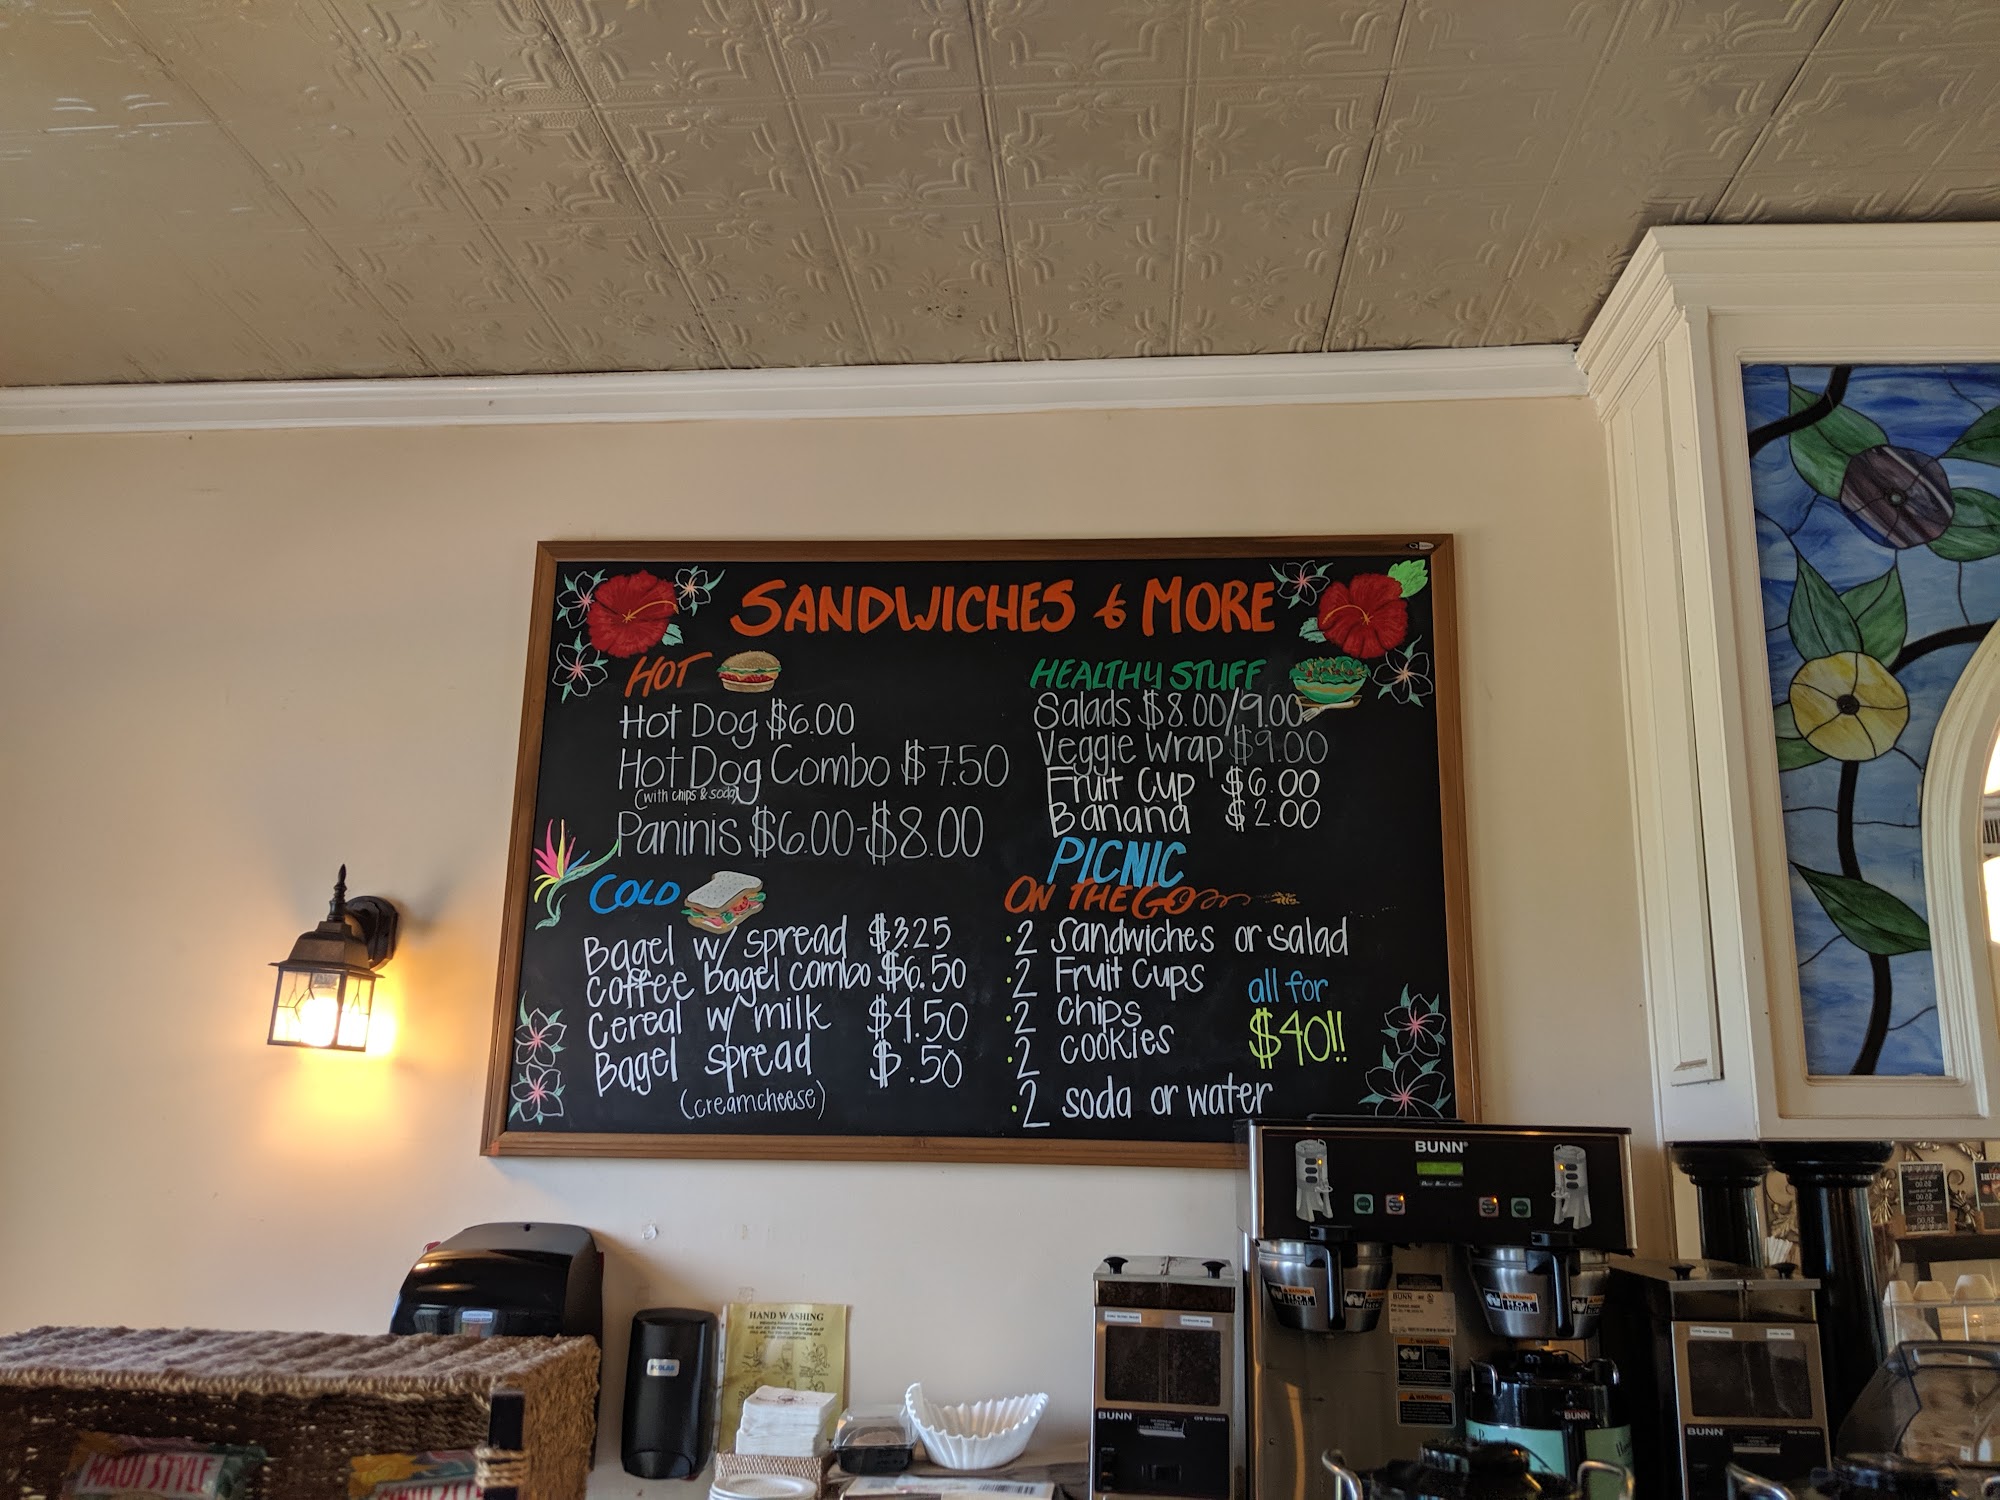 SANDWICHES & MORE
HOT
Hot Dog $6.00
Hot Dog Combo $7.50
(with chips & soda)
Paninis $6.00-$8.00
COLD
Bagel w/ spread $3.25
Coffee Bagel combo $6.50
Cereal w/ milk $4.50
Bagel spread $.50
(creamcheese)
HEALTHY STUFF
Salads $8.00/9.00
Veggie Wrap $9.00
Fruit Cup $6.00
Banana $2.00
PICNIC
ON THE GO
·2 Sandwiches or salad
·2 Fruit Cups
·2 Chips
·2 cookies
·2 soda or water
all for
$40!!
BUNN
HAND WASHING
ECOLAB
BUNN
BUNN
BUNN
WARNING
HOT
WARNING
HOT
MAUI STYLE
MAUI STYLE